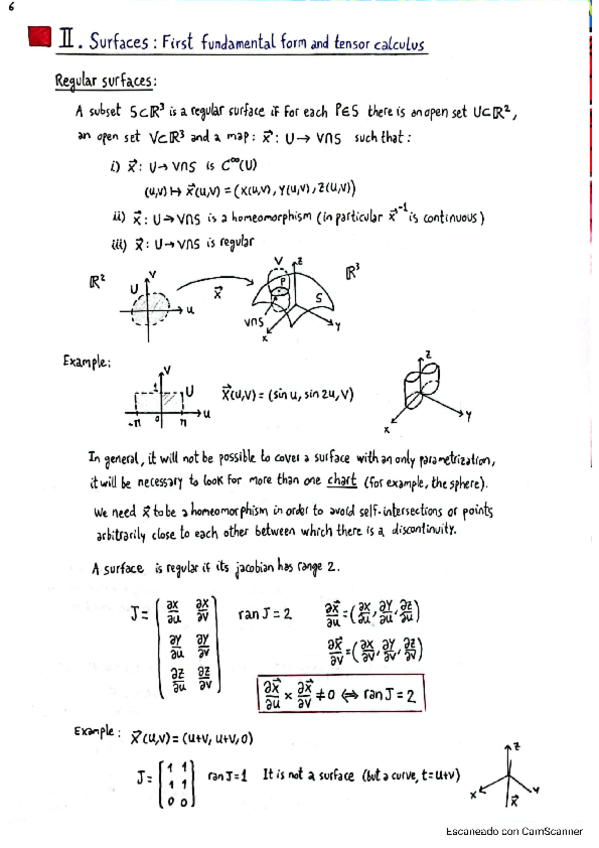 6
II. Surfaces: First fundamental form and tensor calculus
Regular surfaces:
A subset S⊂ℝ³ is a regular surface if for each P∈S there is an open set U⊂ℝ²,
an open set V⊂ℝ³ and a map: x⃗: U → V∩S such that:
i) x⃗: U → V∩S is C^∞(U)
(u,v) ↦ x⃗(u,v) = (x(u,v), y(u,v), z(u,v))
ii) x⃗: U → V∩S is a homeomorphism (in particular x⃗⁻¹ is continuous)
iii) x⃗: U → V∩S is regular
ℝ² U v u x⃗ V z P S V∩S x y ℝ³
Example:
v 1 U -π 0 π u x⃗(u,v) = (sin u, sin 2u, v) z x y
In general, it will not be possible to cover a surface with an only parametrization,
it will be necessary to look for more than one chart (for example, the sphere).
We need x⃗ to be a homeomorphism in order to avoid self-intersections or points
arbitrarily close to each other between which there is a discontinuity.
A surface is regular if its jacobian has range 2.
J = ( ∂x/∂u ∂x/∂v ran J = 2 ∂x⃗/∂u = (∂x/∂u, ∂y/∂u, ∂z/∂u)
∂y/∂u ∂y/∂v ∂x⃗/∂v = (∂x/∂v, ∂y/∂v, ∂z/∂v)
∂z/∂u ∂z/∂v ) ∂x⃗/∂u × ∂x⃗/∂v ≠ 0 ⇔ ran J = 2
Example: x⃗(u,v) = (u+v, u+v, 0)
J = [ 1 1
1 1 ran J = 1 It is not a surface (but a curve, t = u+v)
0 0 ]
z x y x⃗
Escaneado con CamScanner